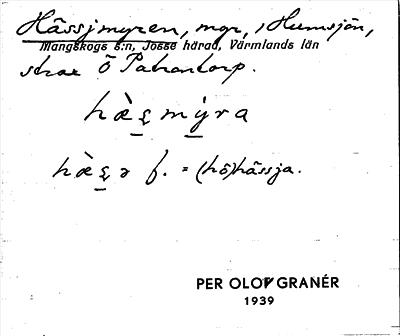 Hässjmyren, mgr, i Humsjön,
Mangskogs s:n, Jösse härad, Värmlands län
strax Ö Patrontorp.
hæ̀ʂmýra
hæ̀ʂə f. = (hö)hässja.
PER OLOF GRANÉR
1939